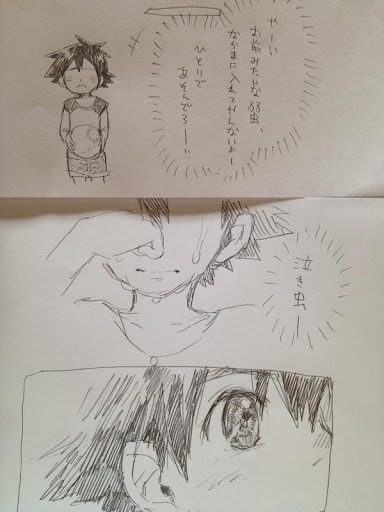 やーい
お前みたいな弱虫、
なかまに入れてやんないよー
ひとりで
あそんでろーい
泣き虫ー